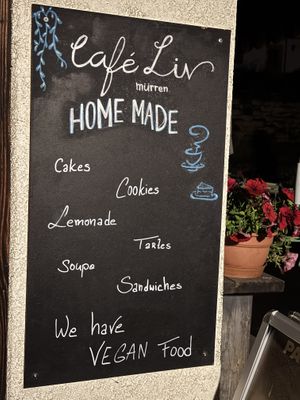 Café Liv
mürren
HOME MADE
Cakes
Cookies
Lemonade
Tartes
Soupe
Sandwiches
We have
VEGAN Food